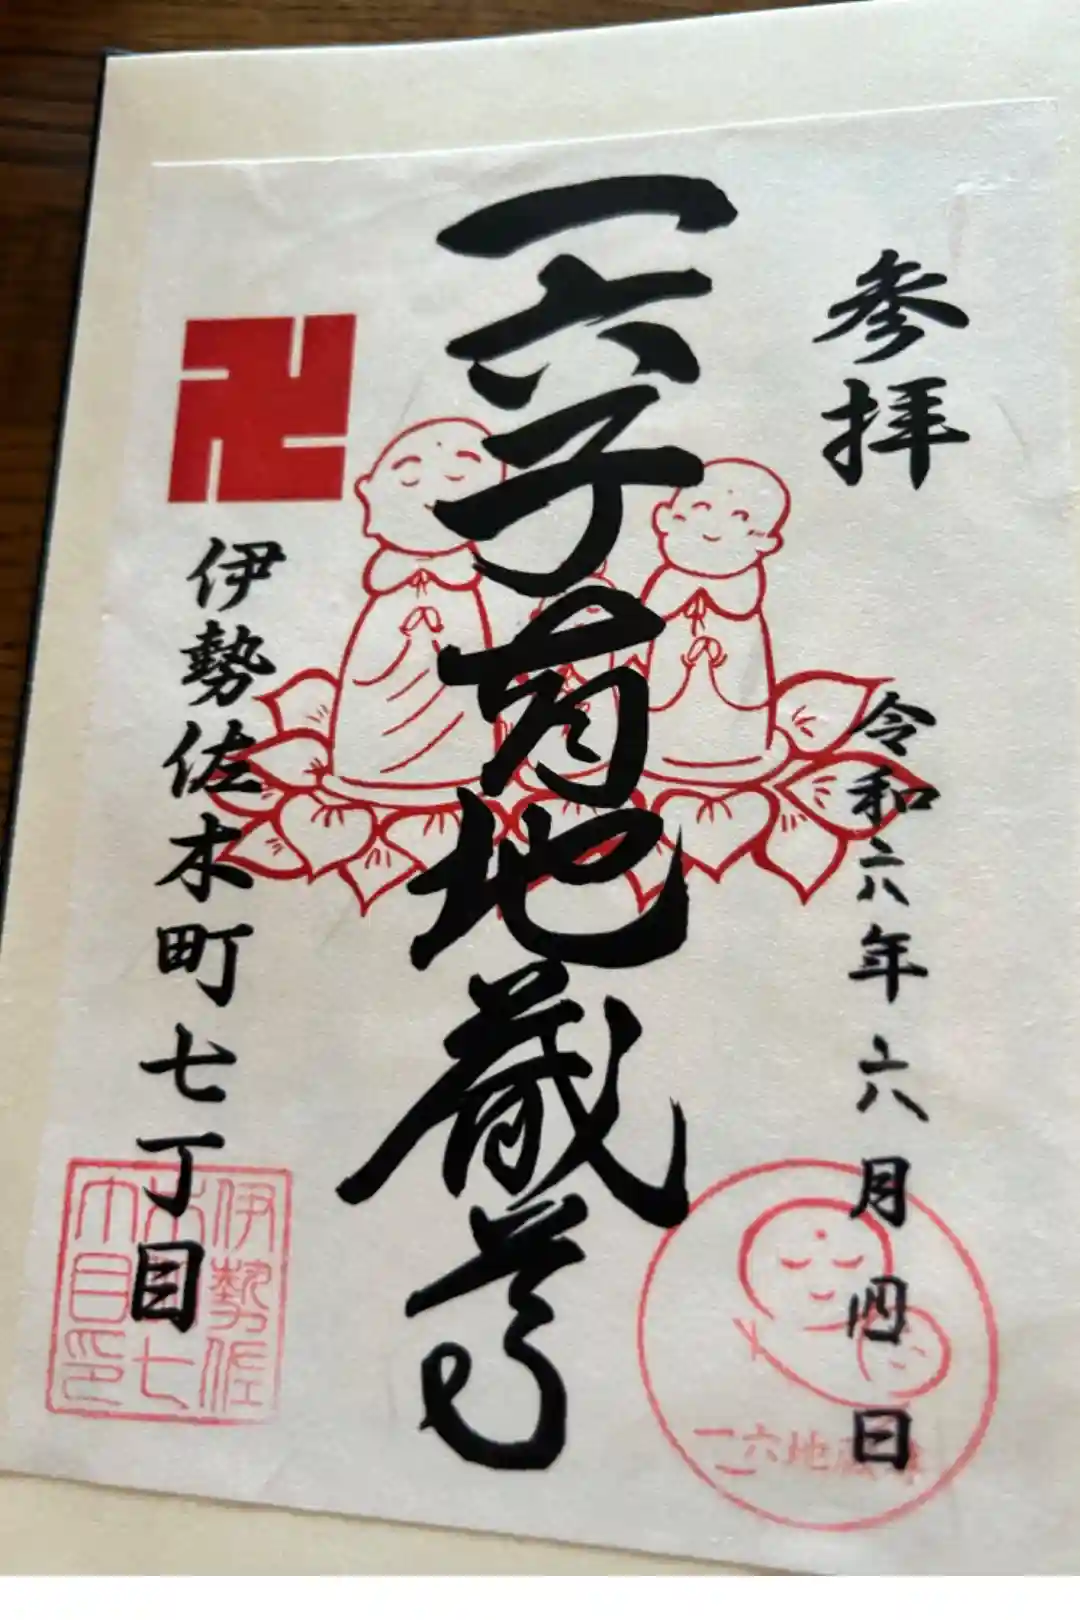 参拝
令和六年六月四日
一六子育地蔵尊
卍
伊勢佐木町七丁目
一六地蔵
伊勢佐
木町七
丁目印